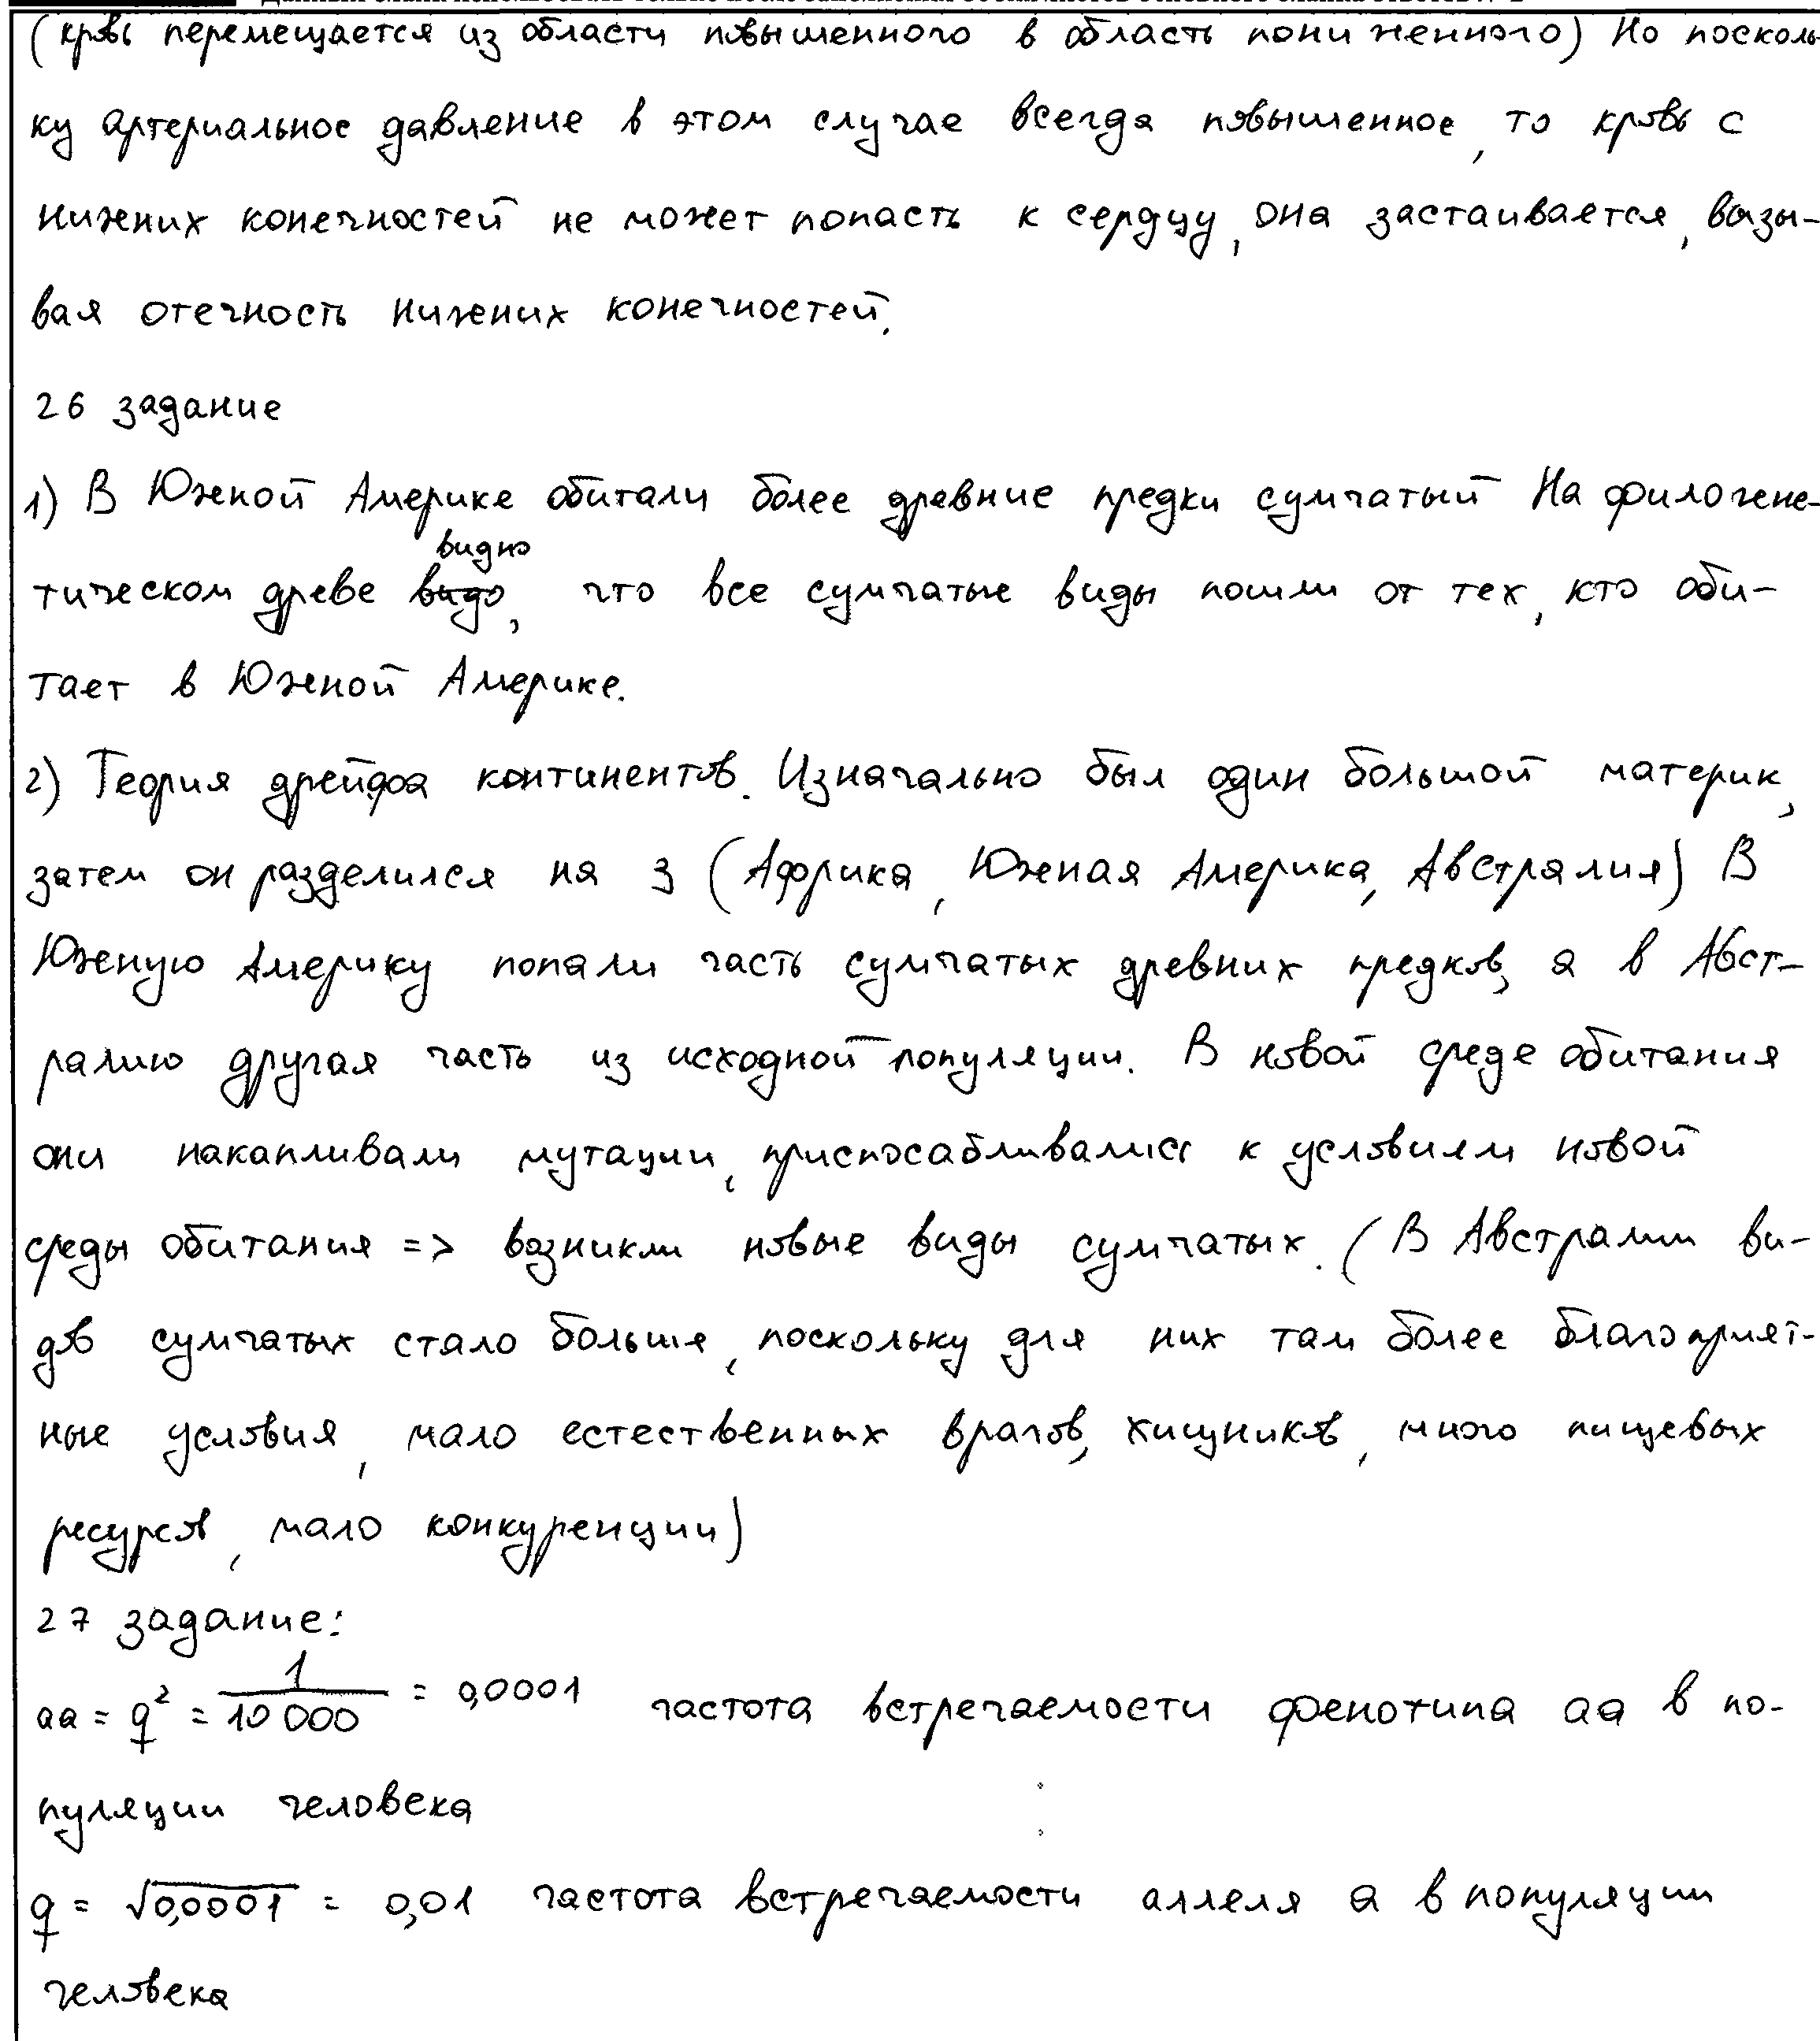 (кровь перемещается из области повышенного в область пониженного) Но посколь-
ку артериальное давление в этом случае всегда повышенное, то кровь с
нижних конечностей не может попасть к сердцу, она застаивается, вызы-
вая отечность нижних конечностей.
26 задание
1) В Южной Америке обитали более древние предки сумчатый На филогене-
видно
тическом древе видо, что все сумчатые виды пошли от тех, кто оби-
тает в Южной Америке.
2) Теория дрейфа континентов. Изначально был один большой материк,
затем он разделился на 3 (Африка, Южная Америка, Австралия) В
Южную Америку попали часть сумчатых древних предков, а в Авст-
ралию другая часть из исходной популяции. В новой среде обитания
они накапливали мутации, приспосабливались к условиям новой
среды обитания => возникли новые виды сумчатых. (В Австралии ви-
дов сумчатых стало больше, поскольку для них там более благоприят-
ные условия, мало естественных врагов, хищников, много пищевых
ресурсов, мало конкуренции)
27 задание:
aa = q² = 1/10 000 = 0,0001 частота встречаемости фенотипа aa в по-
пуляции человека
q = √0,0001 = 0,01 частота встречаемости аллеля a в популяции
человека